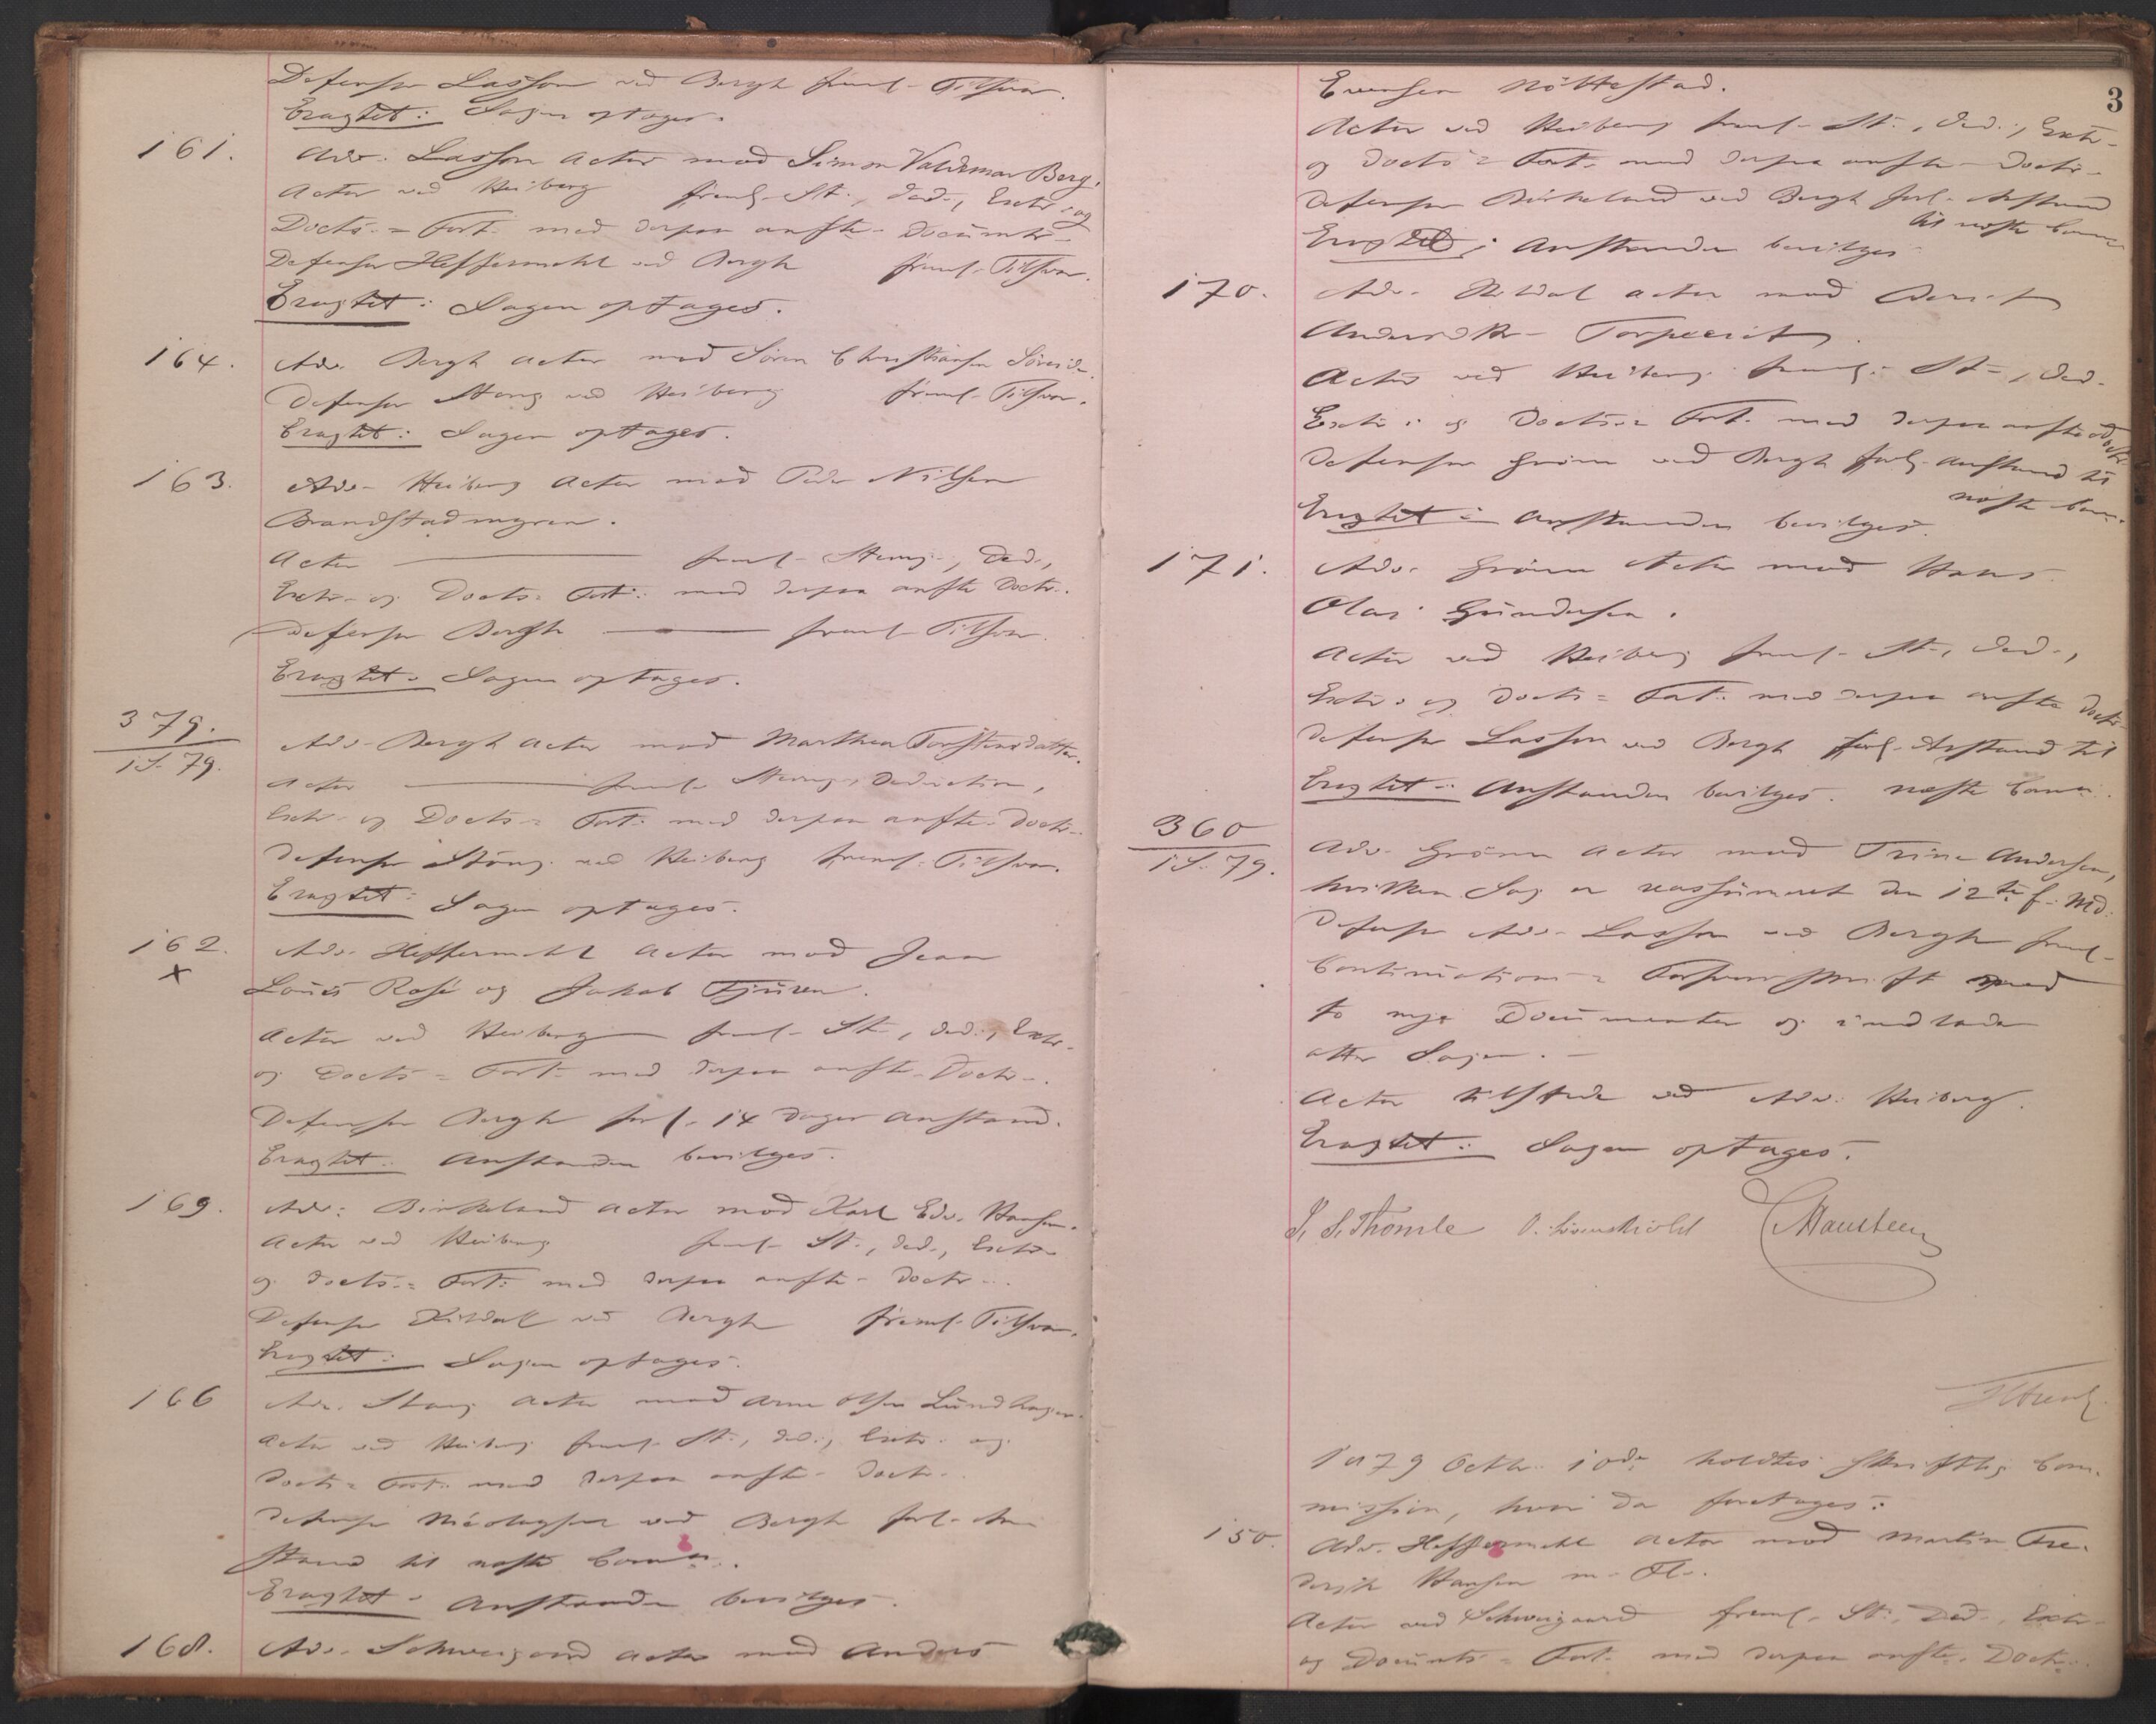 Defensor Lasson ved Bergh freml. Tilsvar.
Eragtet: Sagen optages.
161. Adv. Lasson Actor mod Simon Valdemar Berg.
Actor ved Heiberg freml. St., Ded., Extr. og
Docts.= Fort. med derpaa anfte. Documtr.
Defensor Heffermehl ved Bergh freml. Tilsvar.
Eragtet: Sagen optages.
164. Adv. Bergh Actor mod Sören Christiansen
Defensor Stang ved Heiberg freml. Tilsvar.
Eragtet: Sagen optages.
163. Adv. Heiberg Actor mod Peder Nilsen
Brandstadmyren.
Actor — freml. Stevng., Ded.,
Extr. og Docts.= Fort. med derpaa anfte Doctr.
Defensor Bergh — freml. Tilsvar.
Eragtet: Sagen optages.
379.
1S. 79. Adv. Bergh Actor mod Marthea Torstensdatter.
Actor — freml. Stevng., Deduction,
Extr. og Docts.= Fort. med derpaa anfte. Doctr.
Defensor Stang ved Heiberg freml. Tilsvar.
Eragtet: Sagen optages.
162. Adv. Heffermehl Actor mod Jean
x
Louis Rosé og Jakob Tjüren.
Actor ved Heiberg freml. St., Ded., Extr.
og Docts.= Fort. med derpaa anfte. Doctr.
Defensor Bergh forl. 14 Dages Anstand.
Eragtet: Anstanden bevilges.
169. Adv. Birkeland Actor mod Karl Edv. Hansen.
Actor ved Heiberg freml. St., Ded., Extr.
og Docts.= Fort. med derpaa anfte. Doctr.
Defensor Kildal ved Bergh freml. Tilsvar.
Eragtet: Sagen optages.
166 Adv. Stang Actor mod Arne Olsen Lundhagen.
Actor ved Heiberg freml. St., Ded., Extr. og
Docts.= Fort. med derpaa anfte. Doctr.
Defensor Nicolaysen ved Bergh forl. An-
stand til næste Comm.
Eragtet: Anstanden bevilges.
168. Adv. Schweigaard Actor mod Anders
3
Evensen Nöttestad.
Actor ved Heiberg freml. St., Ded., Extr.
og Docts.= Fort. med derpaa anfte. Doctr.
Defensor Birkeland ved Bergh forl. Anstand
til næste Comm.
Eragtet: Anstanden bevilges
170. Adv. Kildal Actor mod Berit
Andersdtr.
Actor ved Heiberg freml. St., Ded.
Extr. og Docts.= Fort. med derpaa anfte Doctr.
Defensor Grönn ved Bergh forl. Anstand til
næste Comm.
Eragtet: Anstanden bevilges.
171. Adv. Grönn Actor mod Hans
Olai Gundersen.
Actor ved Heiberg freml. St., Ded.,
Extr. og Docts.= Fort. med derpaa anfte Doctr.
Defensor Lasson ved Bergh forl. Anstand til
Eragtet: Anstanden bevilges. næste Comm.
360
1S. 79. Adv. Grönn Actor mod Trine Andersen,
hvilken Sag er reassumeret den 12te f. Md.
Defensor Adv. Lasson ved Bergh freml.
Continuations= Forsvarsskrift med
to nye Documenter og indlader
atter Sagen. —
Actor tilstede ved Adv. Heiberg.
Eragtet: Sagen optages.
S. S. Thomle O. Lövenskiold Hansteen
1879 Octbr. 10de holdtes skriftlig Com-
mission, hvori da foretages:
150. Adv. Heffermehl Actor mod Martin Fre-
derik Hansen m. Fl.
Actor ved Schweigaard freml. St., Ded., Extr.
og Docunts.= Fort. med derpaa anfte. Doctr.